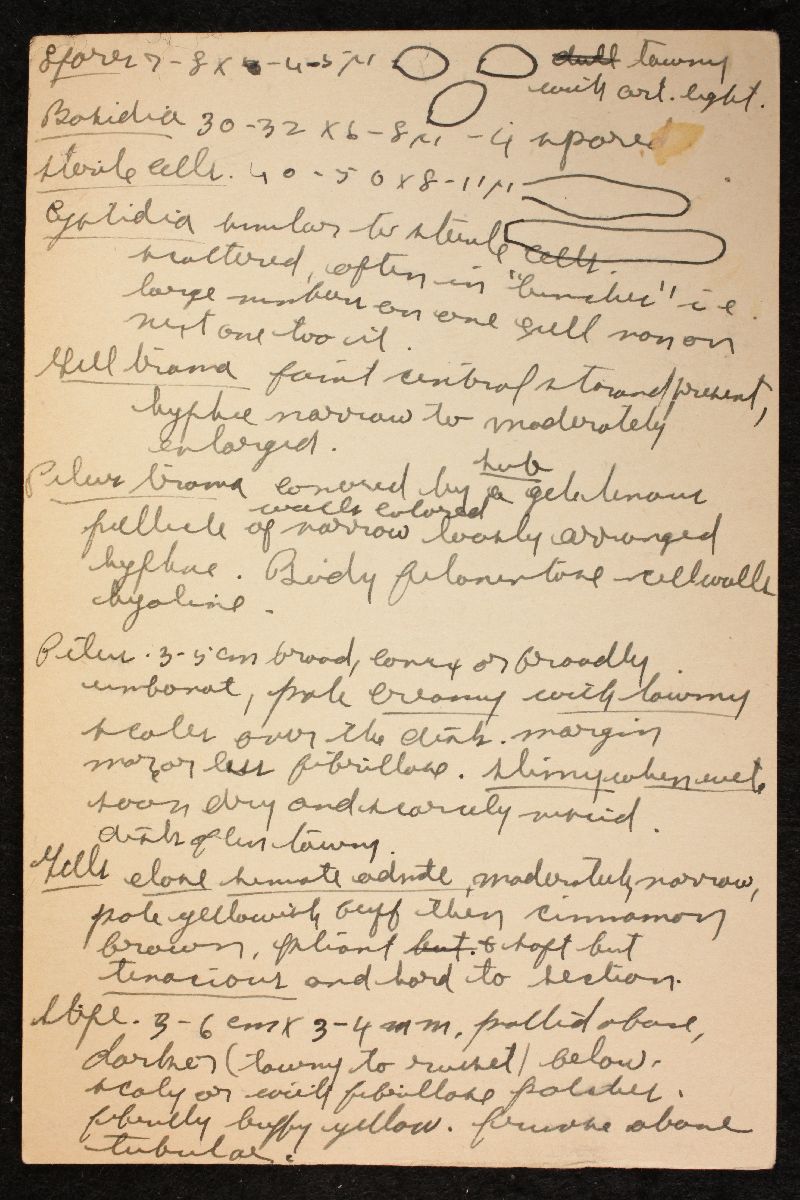 Spores 7-8 x 4-4.5 µ dull tawny
with art. light.
Basidia 30-32 x 6-8 µ - 4 spored
Sterile cells. 40-50 x 8-11 µ
Cystidia similar to sterile cells.
scattered, often in "bunches" i.e.
large numbers on one gill non on
next one too it.
Gill trama faint central strand present,
hyphae narrow to moderately
enlarged.
Pileus trama covered by a sub gelatinous
pellicle of walls colored narrow loosely arranged
hyphae. Body filamentose - cell walls
hyaline.
Pileus. 3-5 cm broad, convex or broadly
umbonat, pale creamy with tawny
scales over the disk. margin
mor or less fibrillose. slimy when wet,
soon dry and scarcely viscid.
disk often tawny.
Gills close sinuate adnate, moderately narrow,
pale yellowish buff then cinnamon
brown, pliant but. & soft but
tenacious and hard to section.
Stipe. 3-6 cm x 3-4 mm, pallid above,
darker (tawny to russet) below.
scaly or with fibrillose patches.
fibrils buffy yellow. pruinose above
tubular.